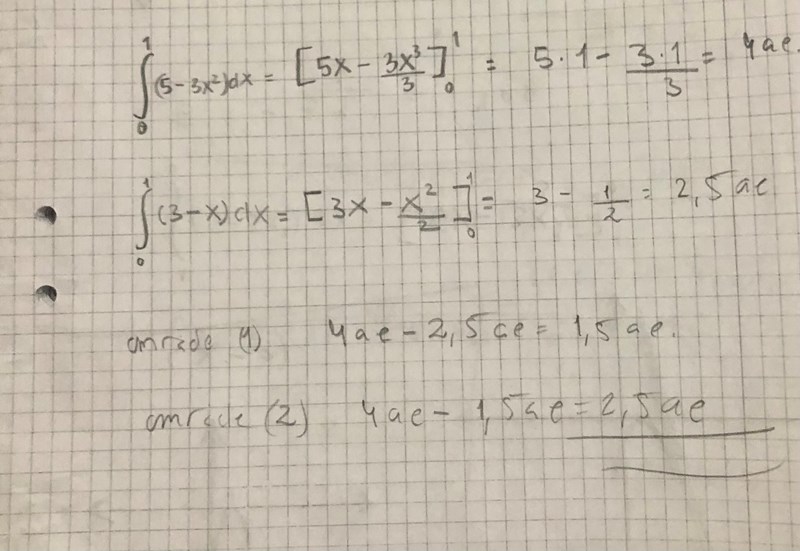 ∫₀¹ (5-3x²)dx = [5x - 3x³/3]₀¹ = 5·1 - 3·1/3 = 4ae.
∫₀¹ (3-x)dx = [3x - x²/2]₀¹ = 3 - 1/2 = 2,5ae
område (1) 4ae - 2,5ae = 1,5ae.
område (2) 4ae - 1,5ae = 2,5ae